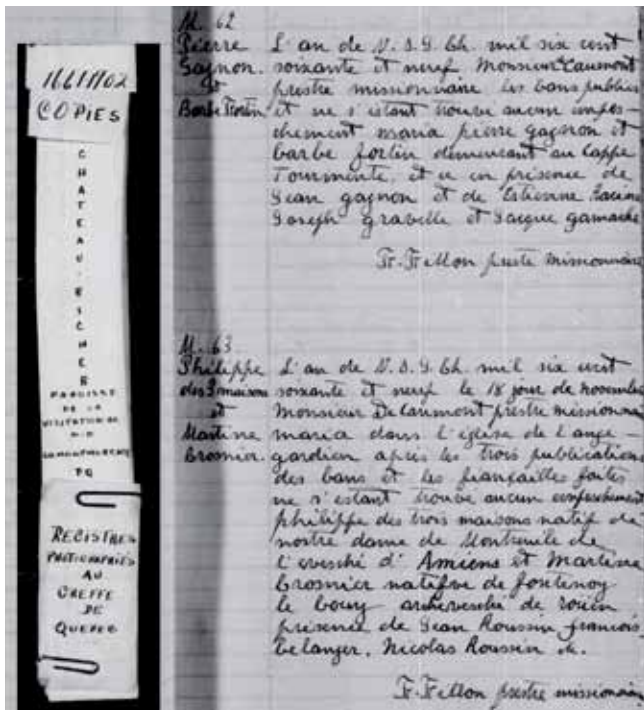 1661-1702
COPIES
CHATEAU-RICHER
PAROISSE
DE LA
VISITATION DE
N-D
CO MONTMORENCY
PQ
REGISTRES
PHOTOGRAPHIÉS
AU
GREFFE
DE
QUEBEC
M. 62
Pierre Gagnon et Barbe Fortin
L'an de N. S. J. Ch. mil six cent
soixante et neuf Monsieur Caumont
prestre missionnaire les bans publies
et ne s'estant trouve aucun empes-
chement maria pierre gagnon et
barbe fortin demeurant au Cappe
Tourmente, et ce en prisence de
Jean gagnon et de Estienne Racine
Joseph gravelle et Jacque gamache
Fr. Fillon preste missionnaire
M. 63
Philippe des 3 maisons et Martine Crosnier.
L'an de N. S. J. Ch. mil six cent
soixante et neuf le 18 jour de novembre
Monsieur De Caumont prestre missionna
maria dans l'église de l'ange
gardien après les trois publications
des bans et les fiançailles faites
ne s'estant trouve aucun empeschement
philippe des trois maisons natif de
nostre dame de Montreuile de
l'evesché d'Amiens et Martine
Crosnier natifve de fontenoy
le bourg archevesche de rouen
présence de Jean Roussin francois
belanger, Nicolas Roussin &.
Fr. Fillon prestre missionnair